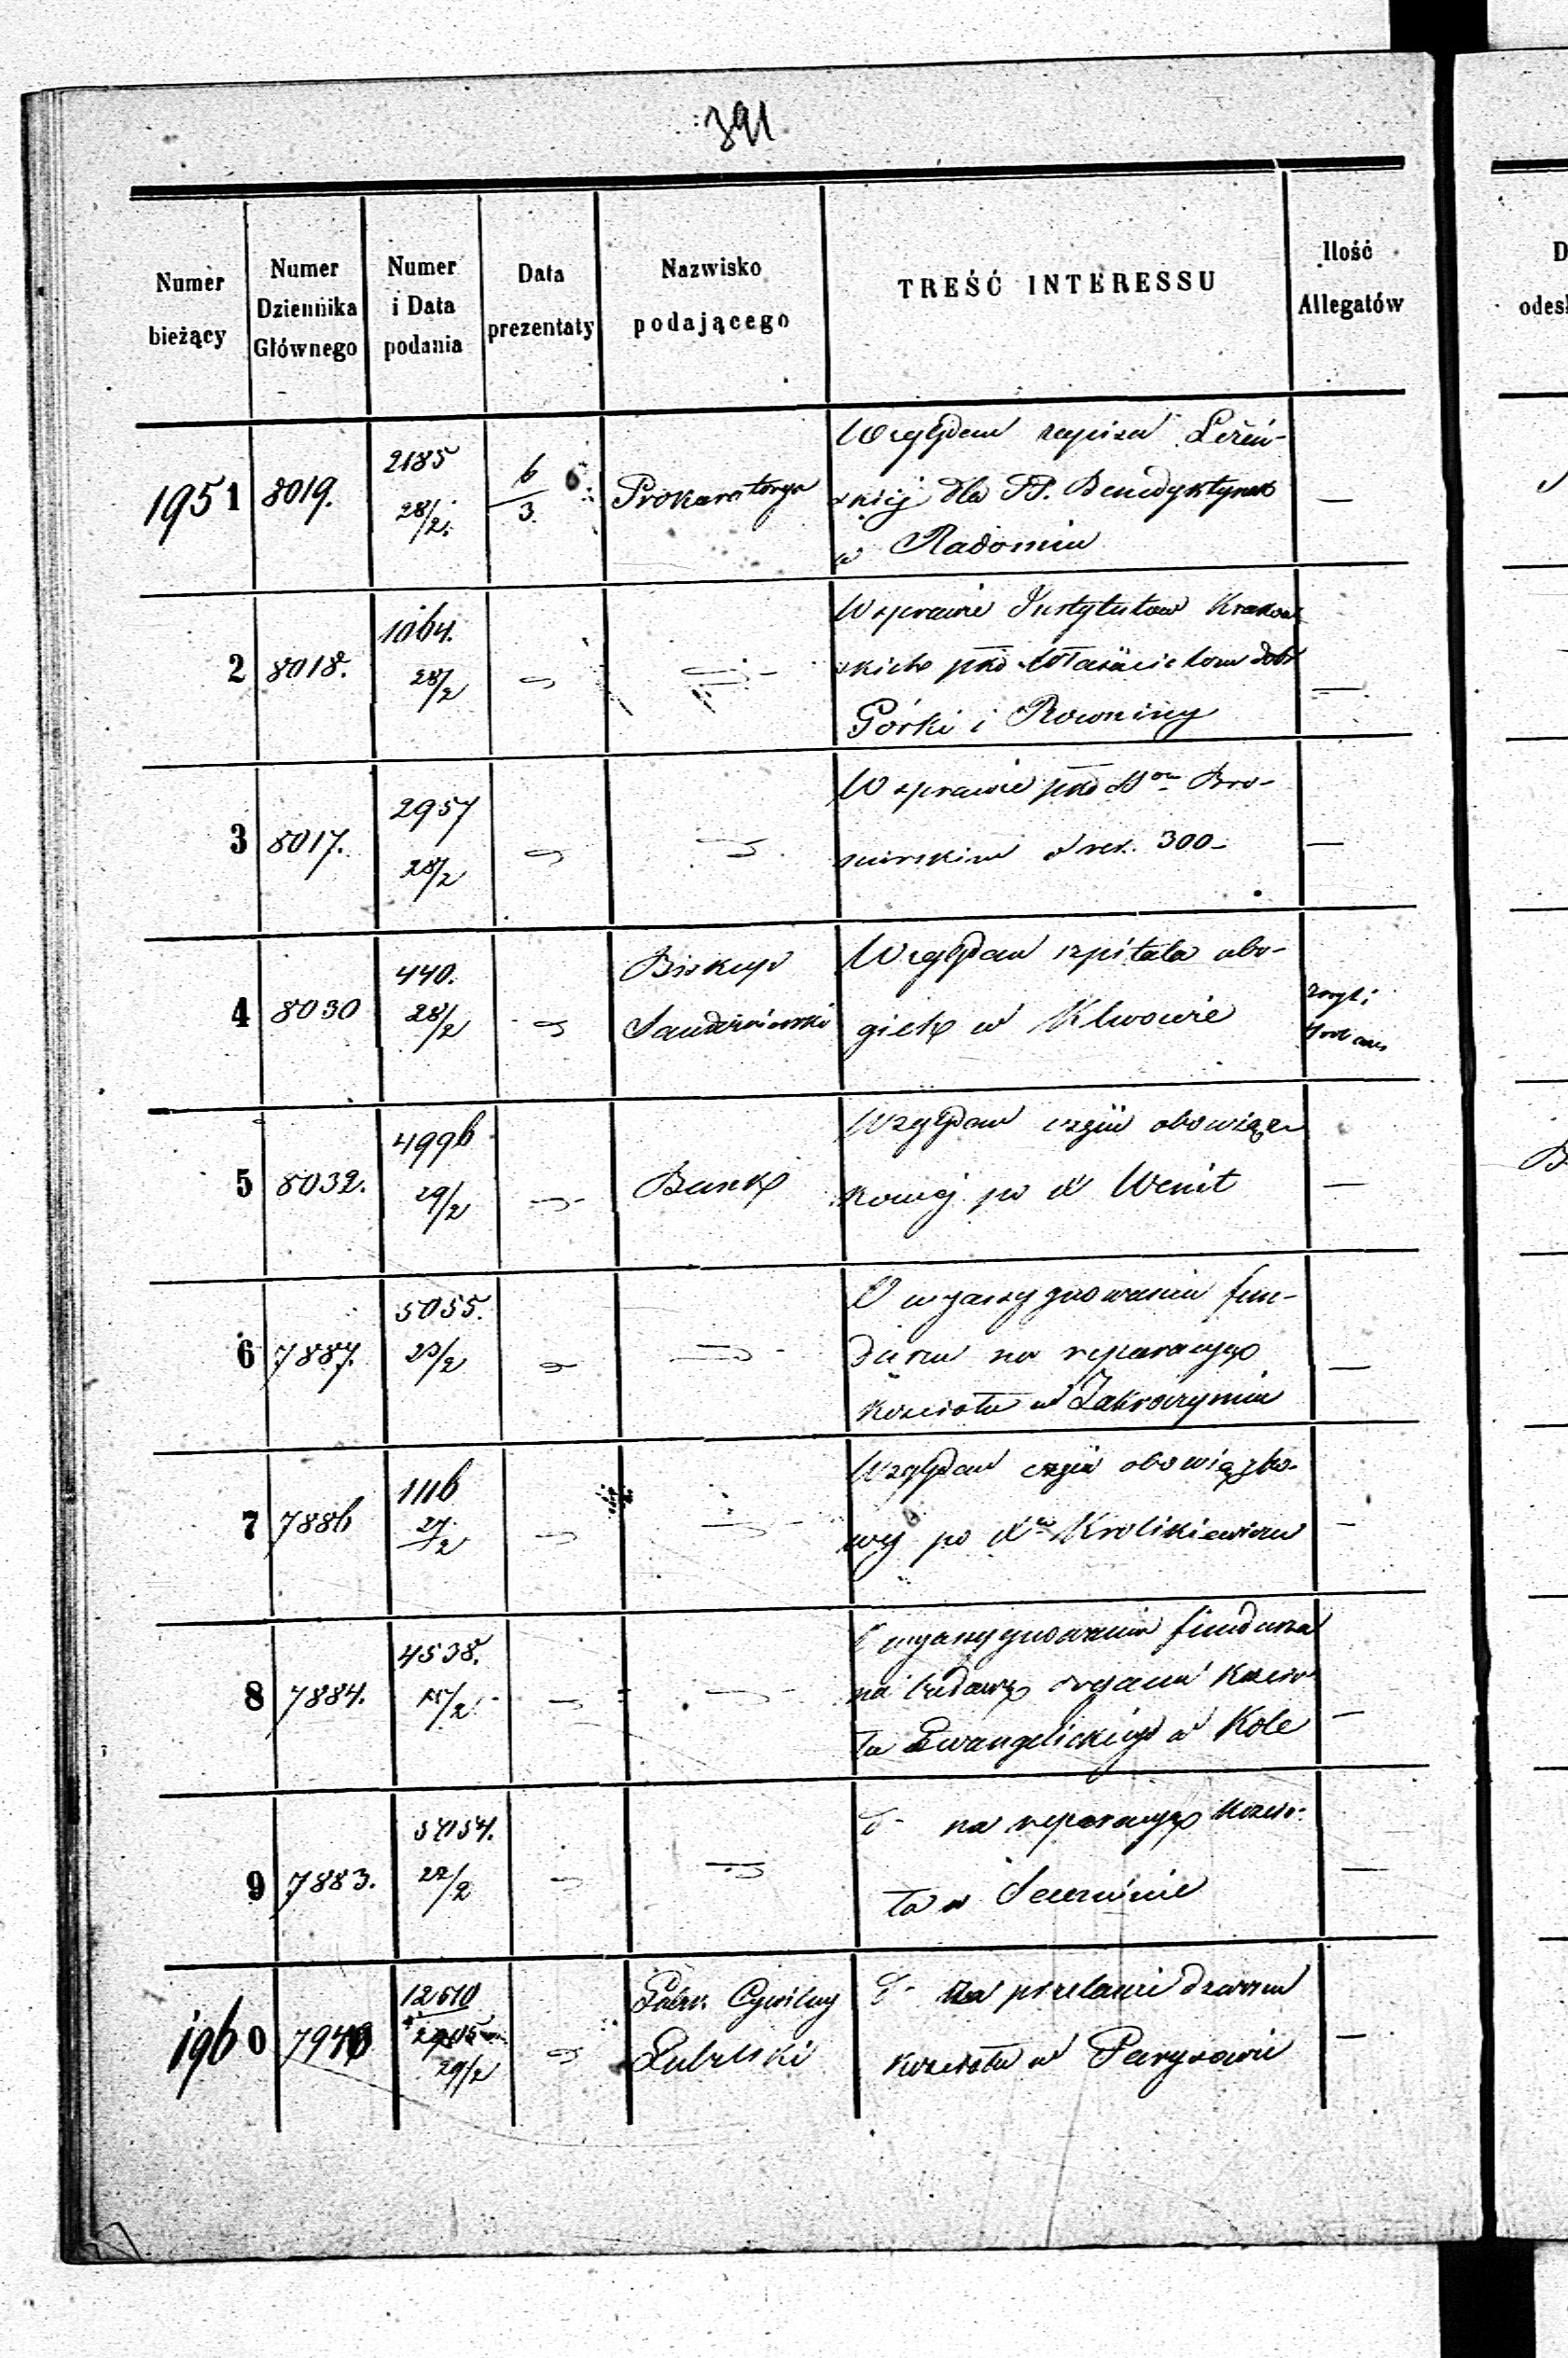 391
Numer bieżący
Numer Dziennika Głównego
Numer i Data podania
Data prezentaty
Nazwisko podającego
TREŚĆ INTERESSU
Ilość Allegatów
1951 8019. 2185 28/2. 6/3 Prokuratorya
Względem zapisu
skiej dla PP. Benedyktynek
w Radomiu
—
2 8018. 1064. 28/2 "
W sprawie Instytutow Krakow
skich pko Właścicielom dobr
Górki i Rowniny
—
3 8017. 2957 28/2 "
W sprawie pko
300 -
—
4 8030 440. 28/2 "
Biskup
Sandomierski
Względem szpitala ubo-
gich w Klwowie
5 8032. 4996 29/2 "
Bank
Względem części obowiąz
kowej po X Wenit
—
6 7887. 5055. 23/2 "
O wyassygnowaniu fun-
duszu na reparacyę
kościoła w Zakroczymiu
—
7 7886 1116 27/2 "
Względem części obowiązko-
wej po Krolikiewiczu
—
8 7884. 4538. "
O wyassygnowaniu funduszu
na budowę organu kościo
ła Ewangelickiego w Kole
—
9 7883. 5054. 22/2 "
d- na reparacyę kościo-
ła w
—
1960 12610 29/2 "
Gubr. Cywilny
Lubelski
d- na przelanie dzwonu
kościoła w Parysowie
—
D
odes